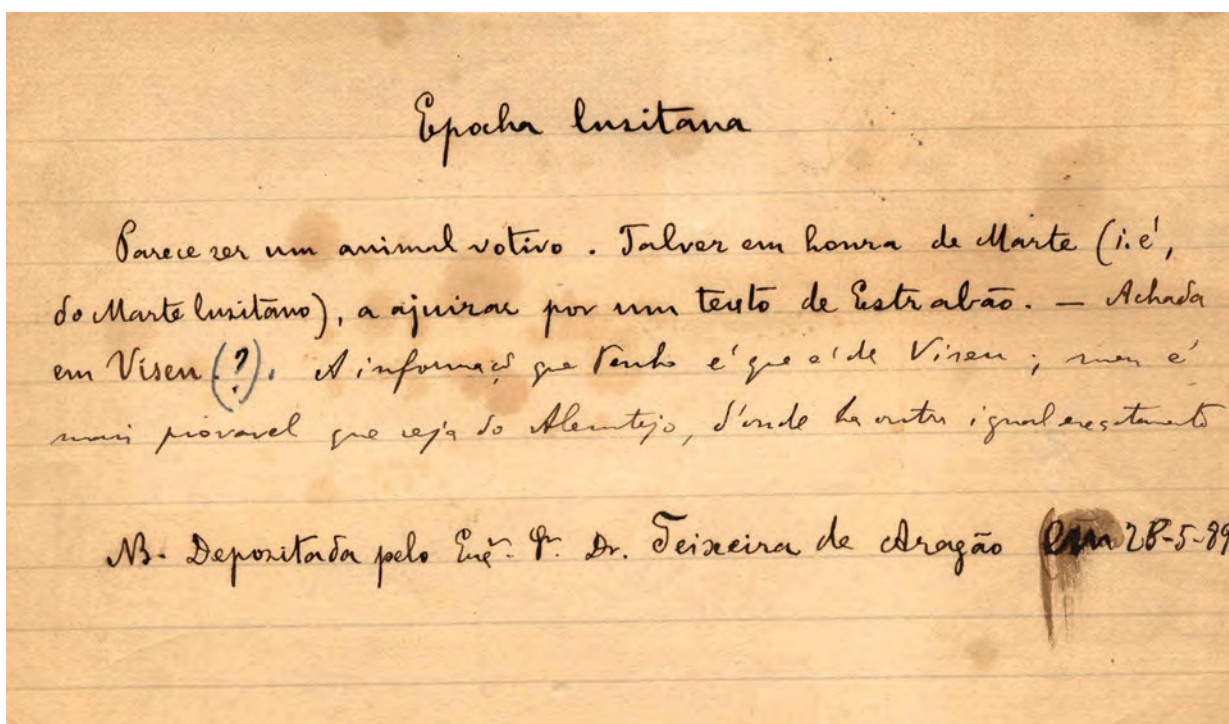 Epocha lusitana
Parece ser um animal votivo. Talvez em honra de Marte (i. é,
do Marte lusitano), a ajuizar por um texto de Estrabão. — Achada
em Viseu (?). A informaçõ que tenho é que é de Viseu; mas é
mais provavel que seja do Alemtejo, d'onde ha outro igual exactamente
NB- Depositada pelo Exmo. Sr. Dr. Teixeira de Aragão em 28-5-89